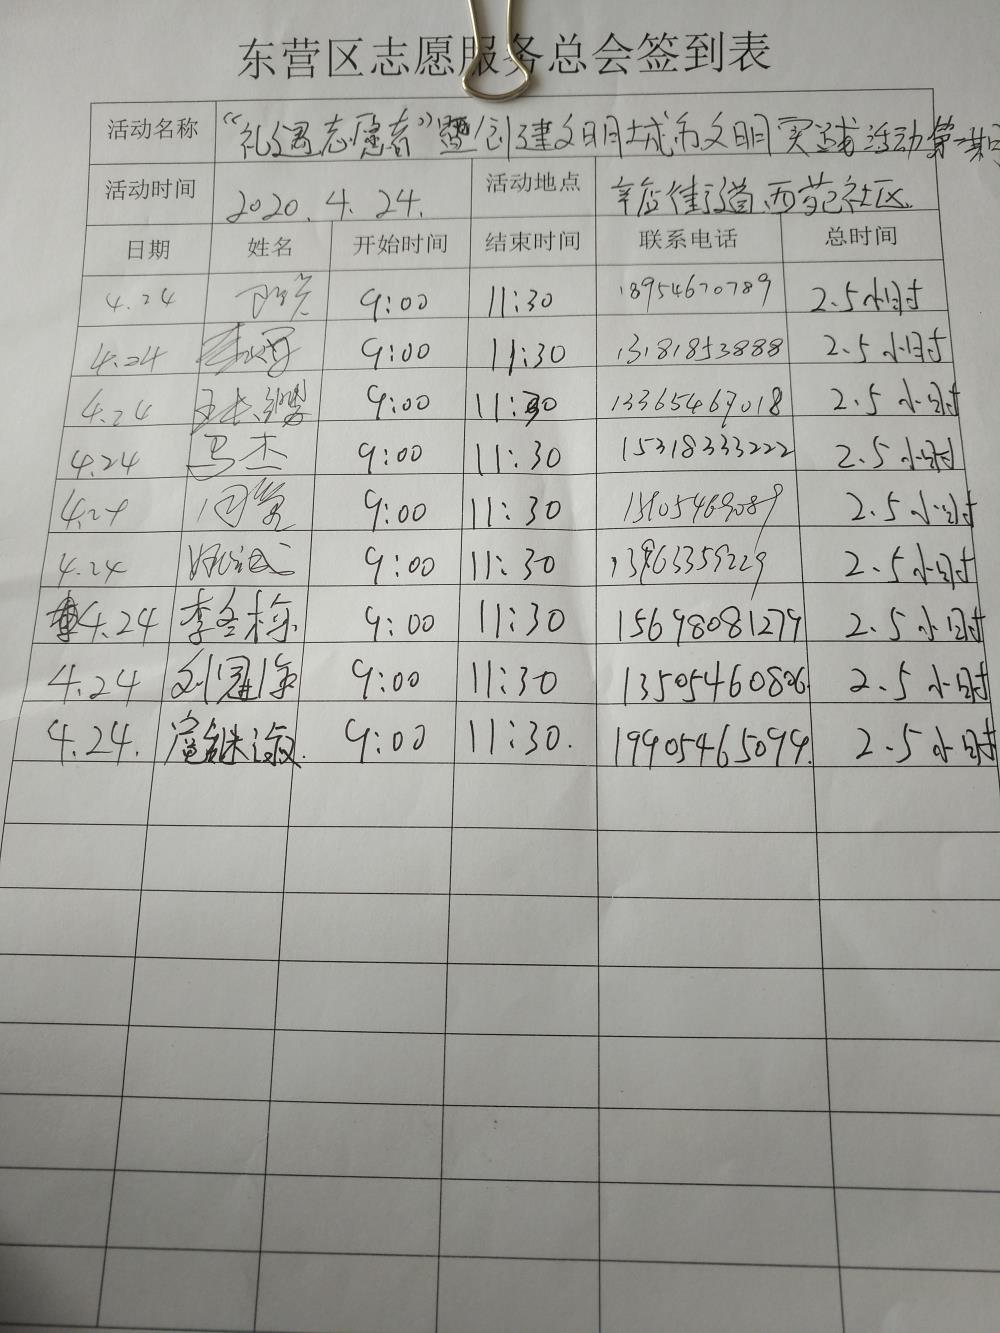 东营区志愿服务总会签到表
活动名称 “礼遇志愿者”暨创建文明城市文明实践活动第一期
活动时间 2020.4.24. 活动地点 辛店街道西苑社区
日期 姓名 开始时间 结束时间 联系电话 总时间
4.24 9:00 11:30 18954670789 2.5小时
4.24 9:00 11:30 13181853888 2.5小时
4.24 9:00 11:30 13365467018 2.5小时
4.24 马杰 9:00 11:30 15318333222 2.5小时
4.24 9:00 11:30 2.5小时
4.24 9:00 11:30 13963359229 2.5小时
4.24 李冬栋 9:00 11:30 15698081279 2.5小时
4.24 9:00 11:30 13505460806 2.5小时
4.24. 9:00 11:30. 19905465099. 2.5小时